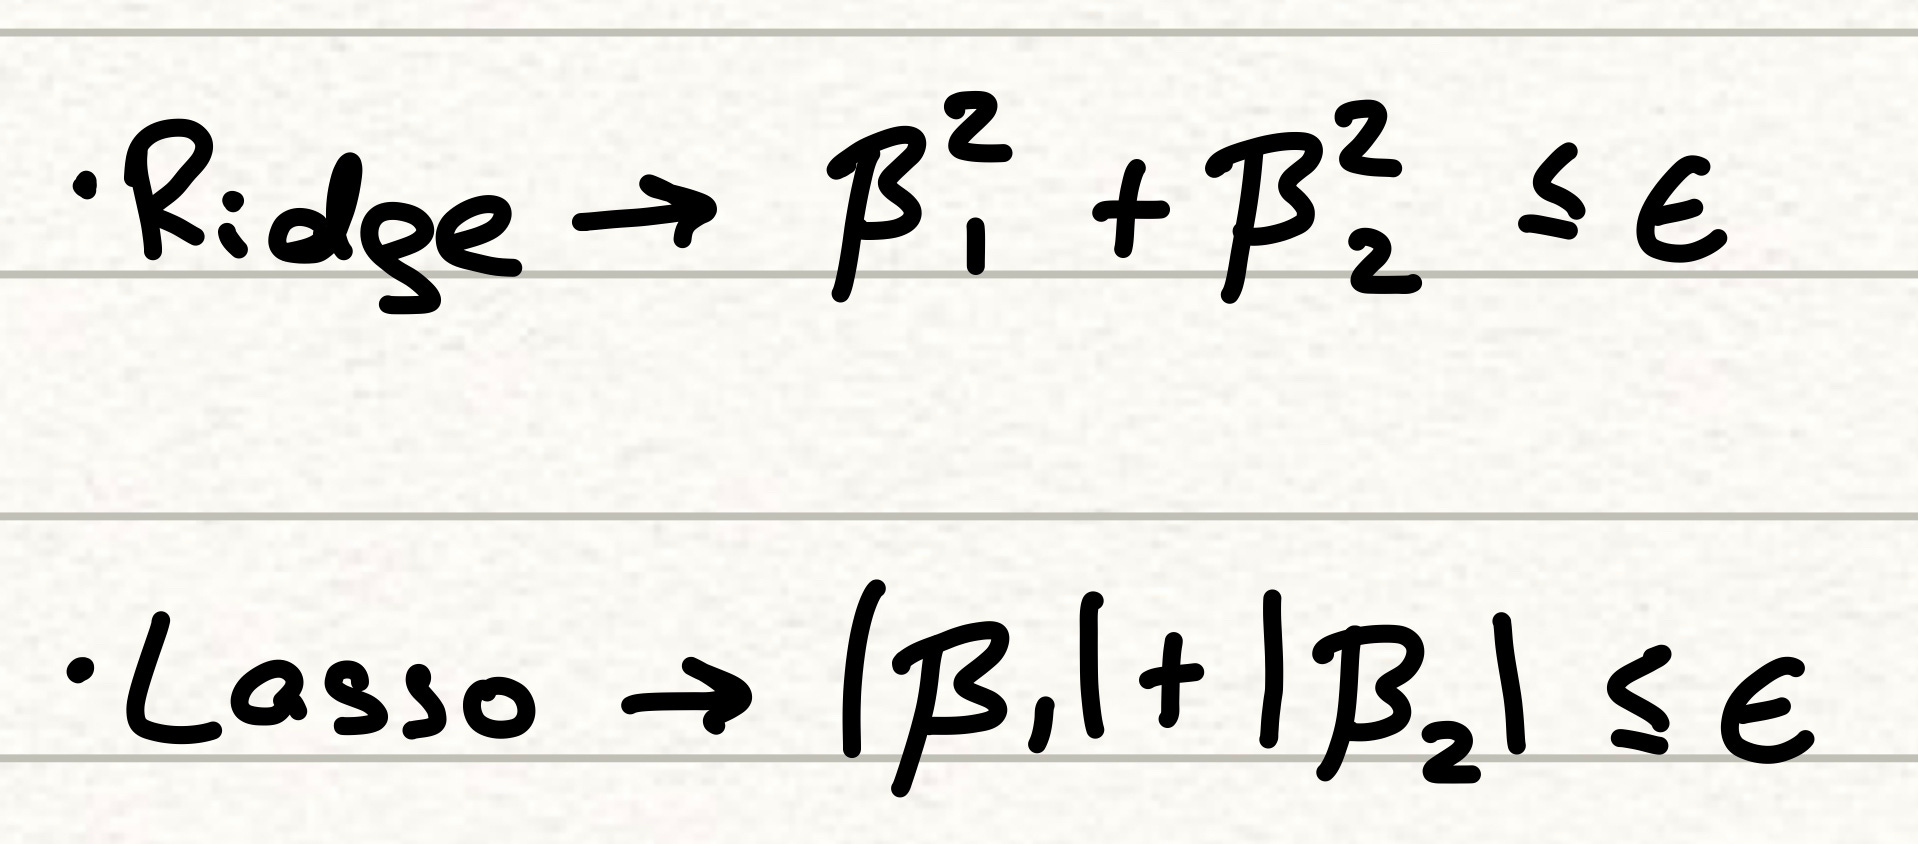 · Ridge → β₁² + β₂² ≤ ϵ
· Lasso → |β₁| + |β₂| ≤ ϵ